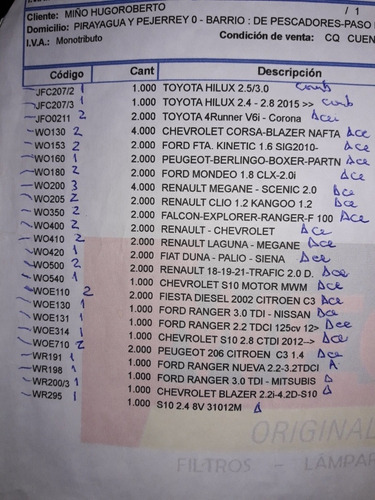 Cliente: MIÑO HUGOROBERTO / 1
Domicilio: PIRAYAGUA Y PEJERREY 0 - BARRIO : DE PESCADORES-PASO
I.V.A.: Monotributo Condición de venta: CQ CUEN
Código Cant Descripción
JFC207/2 1 1.000 TOYOTA HILUX 2.5/3.0 Comb
JFC207/3 1 1.000 TOYOTA HILUX 2.4 - 2.8 2015 >> Comb
JFO0211 2 2.000 TOYOTA 4Runner V6i - Corona Ace
WO130 2 4.000 CHEVROLET CORSA-BLAZER NAFTA Ace
WO153 2 2.000 FORD FTA. KINETIC 1.6 SIG2010- Ace
WO160 1 2.000 PEUGEOT-BERLINGO-BOXER-PARTN Ace
WO180 2 2.000 FORD MONDEO 1.8 CLX-2.0i Ace
WO200 3 4.000 RENAULT MEGANE - SCENIC 2.0 Ace
WO205 2 2.000 RENAULT CLIO 1.2 KANGOO 1.2 Ace
WO350 2 2.000 FALCON-EXPLORER-RANGER-F 100 Ace
WO400 2 2.000 RENAULT - CHEVROLET Ace
WO410 2 2.000 RENAULT LAGUNA - MEGANE Ace
WO420 1 2.000 FIAT DUNA - PALIO - SIENA Ace
WO500 2 2.000 RENAULT 18-19-21-TRAFIC 2.0 D. Ace
WO540 1 1.000 CHEVROLET S10 MOTOR MWM Ace
WOE110 2 2.000 FIESTA DIESEL 2002 CITROEN C3 Ace
WOE130 1 1.000 FORD RANGER 3.0 TDI - NISSAN Ace
WOE131 1 1.000 FORD RANGER 2.2 TDCI 125cv 12> Ace
WOE314 1 1.000 CHEVROLET S10 2.8 CTDI 2012--> Ace
WOE710 2 2.000 PEUGEOT 206 CITROEN C3 1.4 Ace
WR191 1 1.000 FORD RANGER NUEVA 2.2-3.2TDCI A
WR198 1 1.000 FORD RANGER 3.0 TDI - MITSUBIS A
WR200/3 1 1.000 CHEVROLET BLAZER 2.2i-4.2D-S10 A
WR295 1 1.000 S10 2.4 8V 31012M A
ORIGINAL
FILTROS - LÁMPAR